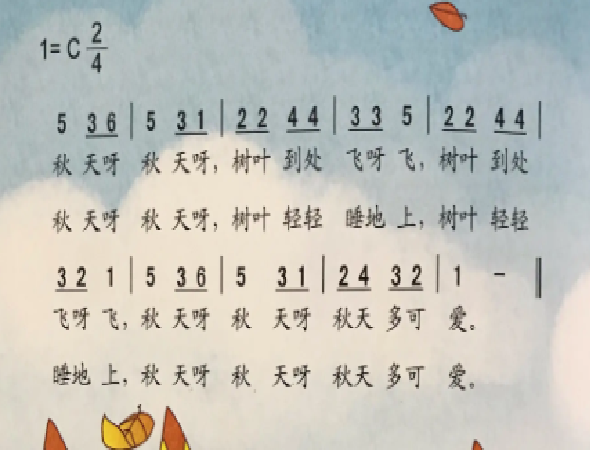 1= C 2/4
5 3 6 | 5 3 1 | 2 2 4 4 | 3 3 5 | 2 2 4 4 |
秋 天呀 秋 天呀, 树叶 到处 飞呀 飞, 树叶 到处
秋 天呀 秋 天呀, 树叶 轻轻 睡地 上, 树叶 轻轻
3 2 1 | 5 3 6 | 5 3 1 | 2 4 3 2 | 1 - ‖
飞呀 飞, 秋 天呀 秋 天呀 秋天 多可 爱。
睡地 上, 秋 天呀 秋 天呀 秋天 多可 爱。